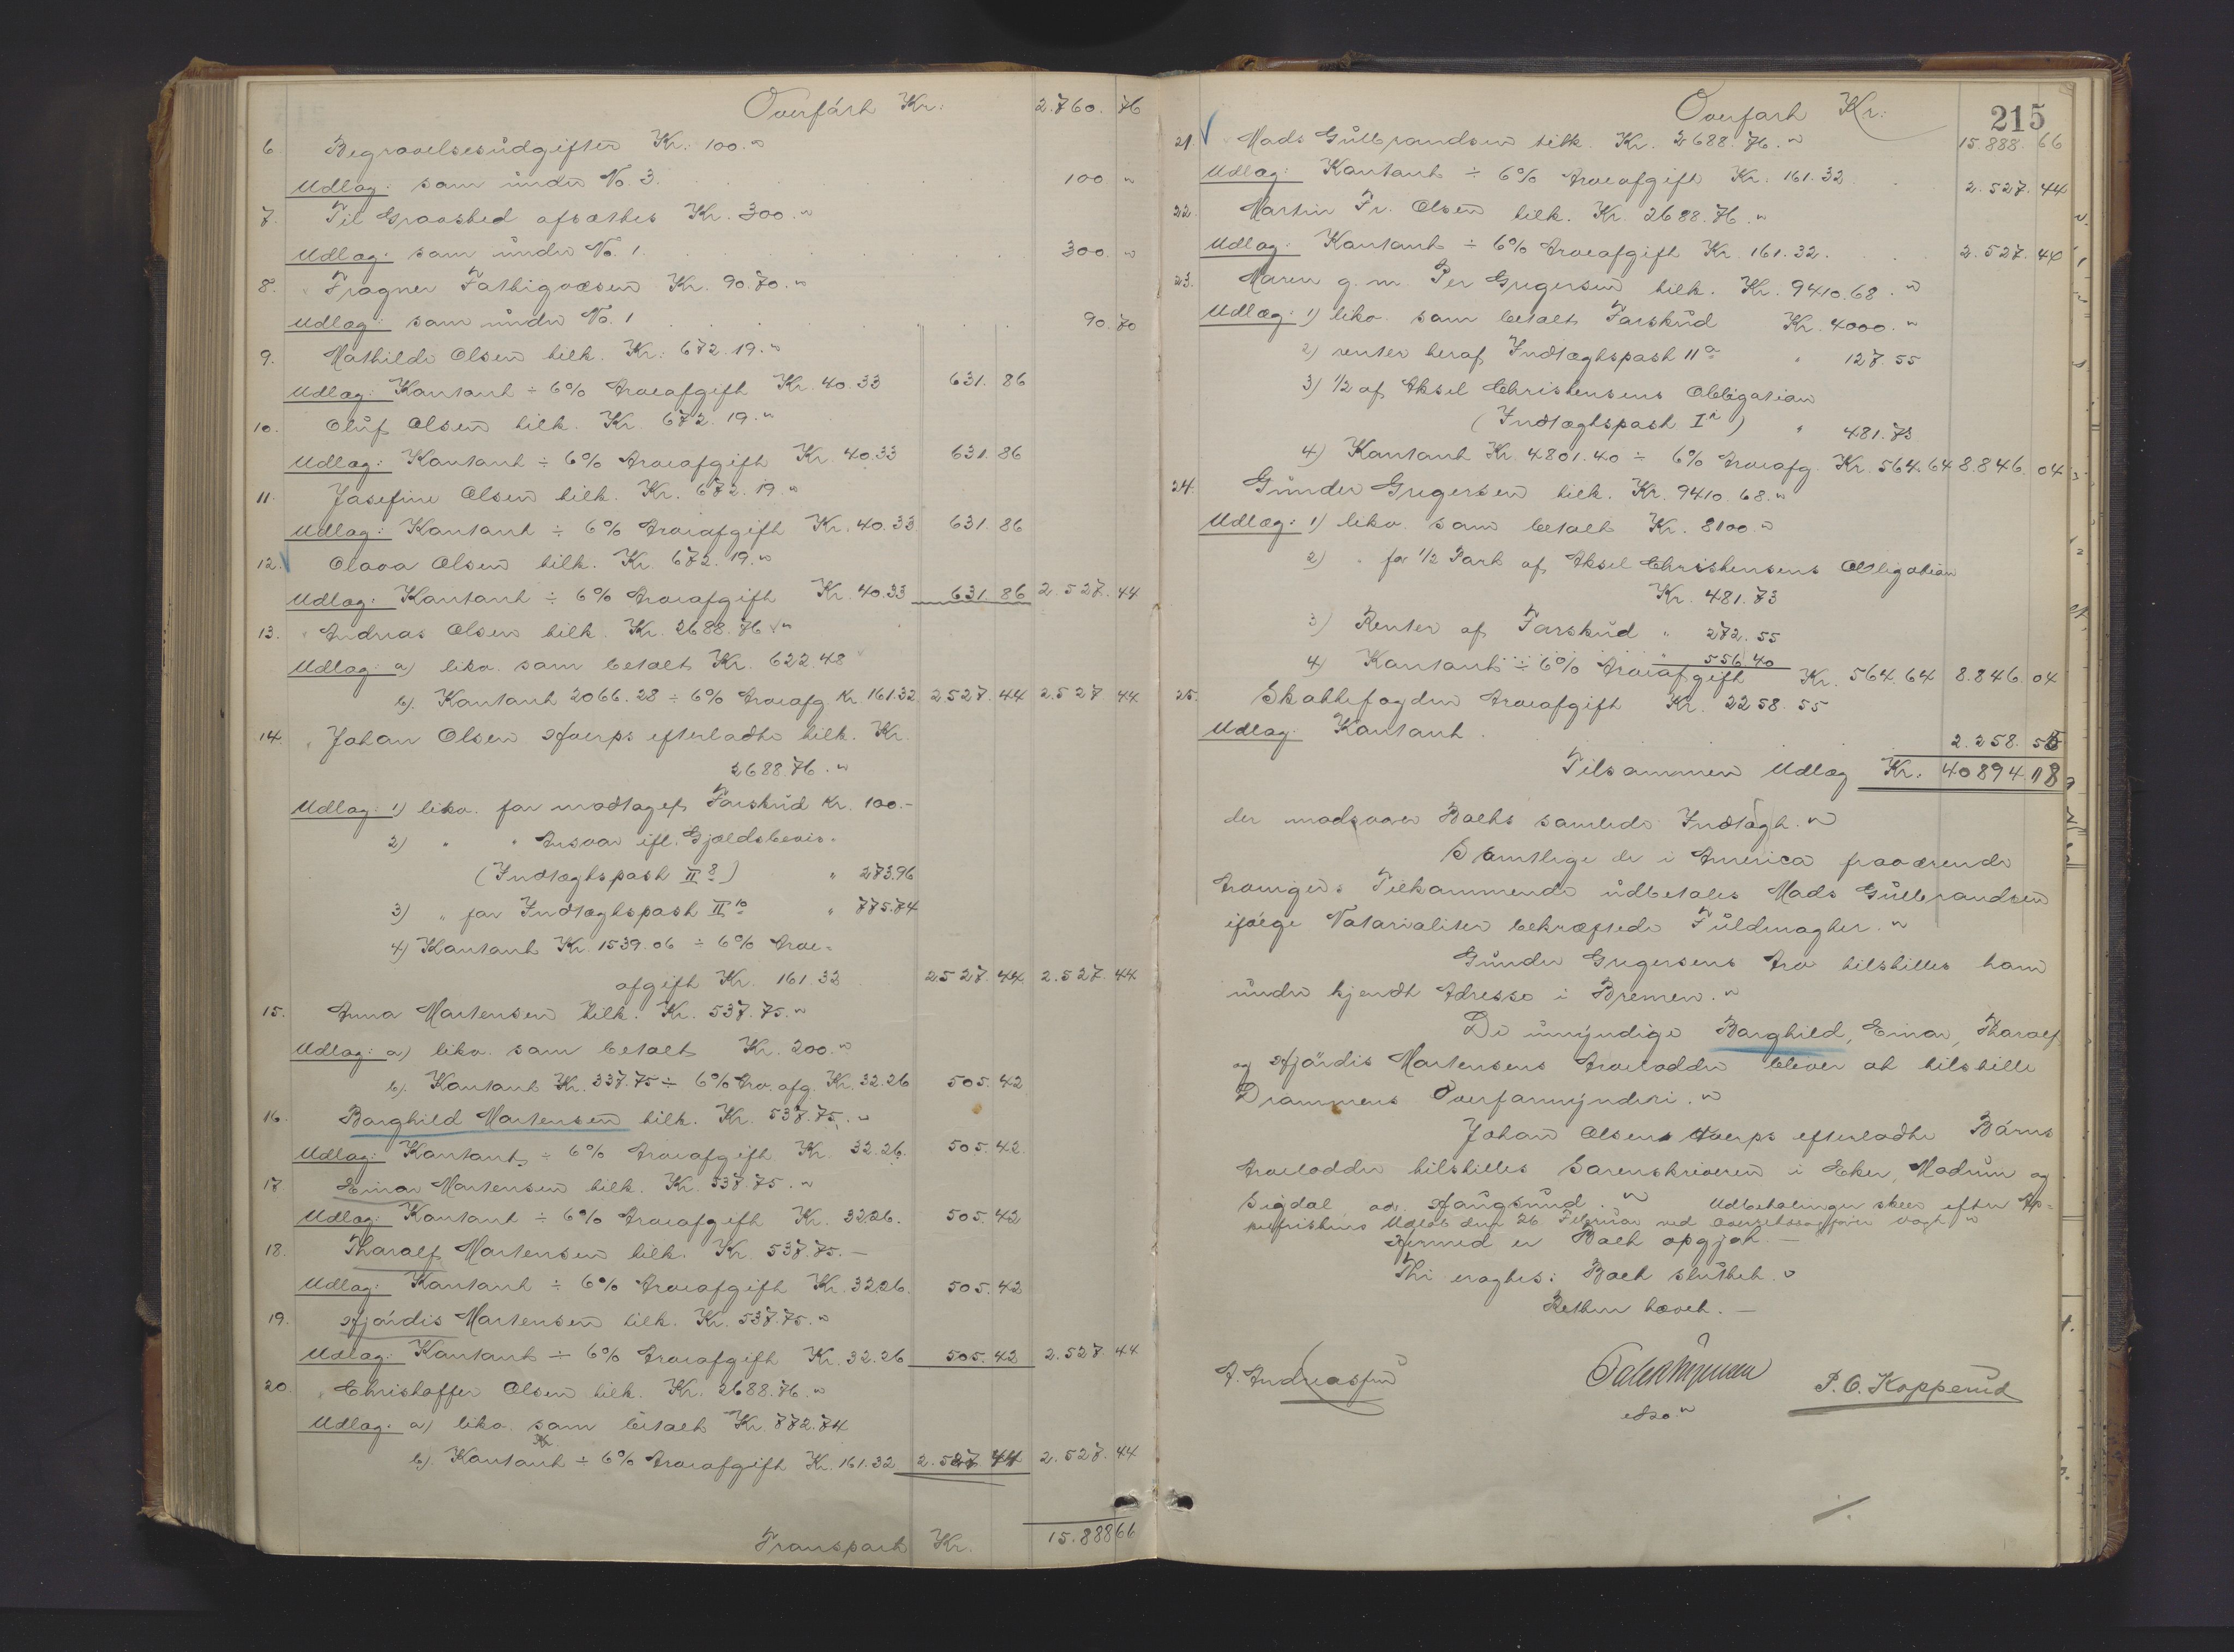 Overført Kr. 2.760. 76
6. Begravelsesudgifter Kr. 100.
Udlæg: som under No. 3. 100
7. Til Gravsted afsættes Kr. 300.
Udlæg: som under No. 1 300.
8. Kr. 90.70.
Udlæg: som under No. 1 90. 70
9. Mathilde Olsen tilk. Kr. 672.19.
Udlæg: Kontant ÷ 6% Arveafgift Kr. 40.33 631. 86
10. Oluf Olsen tilk. Kr. 672.19.
Udlæg: Kontant ÷ 6% Arveafgift Kr. 40.33 631. 86
11. Josefine Olsen tilk. Kr. 672.19.
Udlæg: Kontant ÷ 6% Arveafgift Kr. 40.33 631. 86
12. Olava Olsen tilk. Kr. 672.19.
Udlæg: Kontant ÷ 6% Arveafgift Kr. 40.33 631. 86 2.527. 44
13. Andreas Olsen tilk. Kr. 2688.76
Udlæg: a) likv. som betalt Kr. 622.48
b). Kontant 2066.28 ÷ 6% Arveafg Kr. 161.32 2527. 44 2.527 44
14. Johan Olsen efterladte tilk. Kr.
2688.76.
Udlæg: 1) likv. for modtaget Forskud Kr. 100.-
2) " " Ansvar ifl. Gjældsbevis
(Indtægtspost II 8) " 273.96
3) " for Indtægtspost II 10 " 775.74
4) Kontant Kr. 1539.06 ÷ 6% Arve=
afgift Kr. 161.32 2527. 44 2.527. 44
15. Anna Martensen tilk. Kr. 537.75.
Udlæg: a) likv. som betalt Kr. 200.
b). Kontant Kr. 337.75 ÷ 6% Arv. afg. Kr. 32.26 505. 42
16. Borghild Martensen tilk. Kr. 537.75.
Udlæg: Kontant ÷ 6% Arveafgift Kr. 32.26. 505. 42.
17 Einar Martensen tilk. Kr. 537.75.
Udlæg: Kontant ÷ 6% Arveafgift Kr. 32.26. 505. 42
18. Tharalf Martensen tilk. Kr. 537.75. —
Udlæg: Kontant ÷ 6% Arveafgift Kr. 32.26. 505. 42
19. Hjørdis Martensen tilk. Kr. 537.75.
Udlæg: Kontant ÷ 6% Arveafgift Kr. 32.26 505. 42 2.527. 44
20. Christoffer Olsen tilk. Kr. 2688.76.
Udlæg: a) likv. som betalt Kr. 772.74
Kr.
b). Kontant ÷ 6% Arveafgift Kr. 161.32 2.527 44 2.527. 44
Transport Kr. 15.888 66
215
Overført Kr. 15.888. 66
21. Mads Gulbrandsen tilk. Kr. 2688.76.
Udlæg: Kontant ÷ 6% Arveafgift Kr. 161.32 2.527. 44
22. Martin Fr. Olsen tilk. Kr. 2688.76.
Udlæg: Kontant ÷ 6% Arveafgift Kr. 161.32. 2.527. 44
23. Maren g. m. Per Gregersen tilk. Kr. 9410.68.
Udlæg: 1) likv. som betalt Forskud Kr. 4000.
2) renter heraf Indtægtspost 11 a " 127.55
3) 1/2 af Aksel Christensens Obligation
(Indtægtspost I ) " 481.73
4) Kontant Kr. 4801.40 ÷ 6% Arveafg. Kr. 564.64 8.846. 04
24. Gunder Gregersen tilk. Kr. 9410.68.
Udlæg: 1) likv. som betalt Kr. 8100.
2) " for 1/2 Part af Aksel Christensens Obligation
Kr. 481.73
3) Renter af Forskud " 272.55
4) Kontant " 556.40
÷ 6% Arveafgift Kr. 564.64 8.846. 04
25. Skattefogden Arveafgift Kr. 2258.55
Udlæg: Kontant. 2.258. 55
Tilsammen Udlæg Kr. 40894. 18
der modsvarer Boets samlede Indtægt.
Samtlige de i America fraværende
Arvingers Tilkommende udbetales Mads Gulbrandsen
ifølge Notarialiter bekræftede Fuldmagter.
Gunder Gregersens Arv tilstilles ham
under kjendt Adresse i Bremen.
De umyndige Borghild, Einar, Tharalf
og Hjørdis Martensens Arvelodder bliver at tilstille
Drammens Overformynderi.
Johan Olsens efterladte Børns
Arvelodder tilstilles Sorenskriveren i Eker, Modum og
Sigdal, adr. Haugsund. Udbetalingen skeer efter Ap=
pelfristens Udløb den 26 Februar ved Overretssagfører Vogt
Hermed er Boet opgjort. —
Thi eragtes: Boet sluttet.
Retten hævet. —
A. Andreassen
P. O. Kopperud